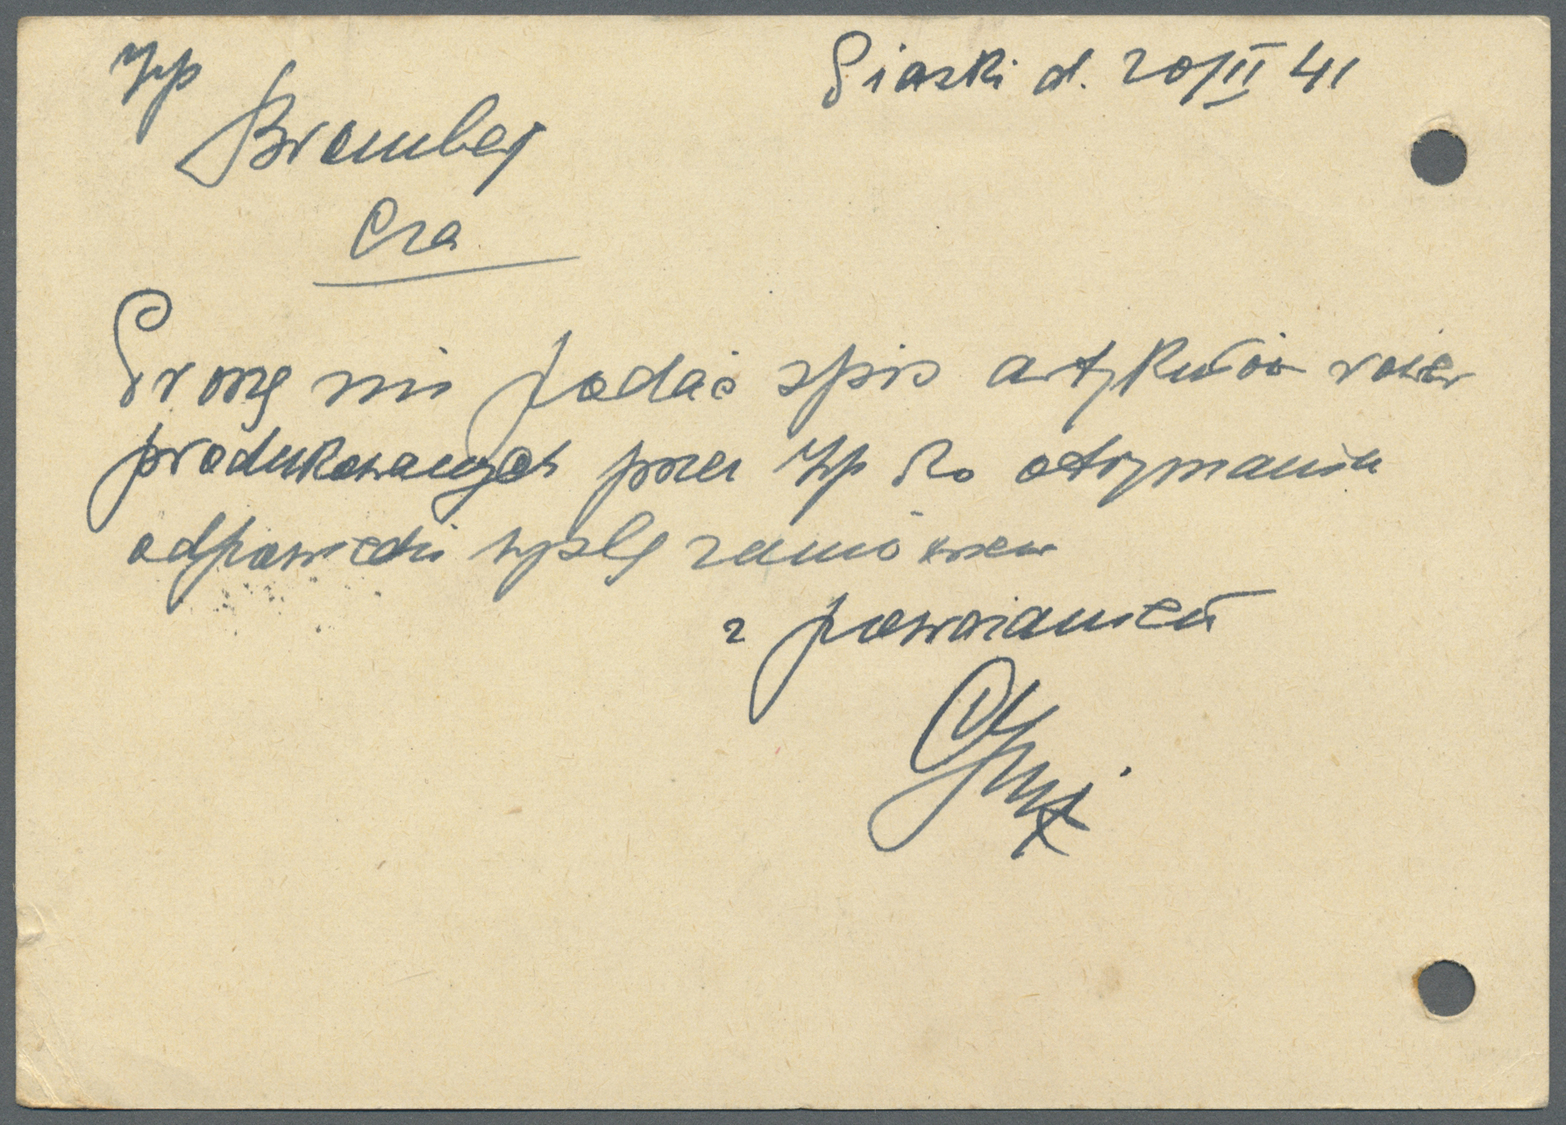 Wp Piaski d. 20/II 41
Bromberg
Cza
Proszę mi podać spis artykułów rower
produkowanych przez Wp Po otrzymaniu
odpowiedzi wyślę zamówien
z poważaniem